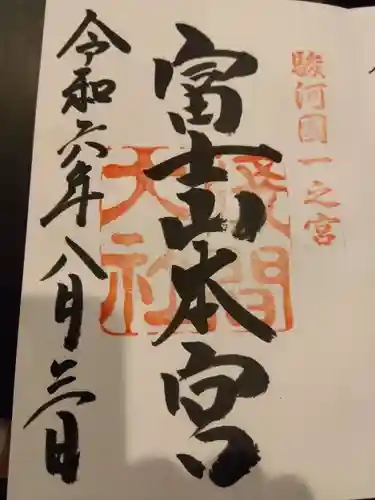 駿河國一之宮
富士山本宮
浅間大社
令和六年八月三日